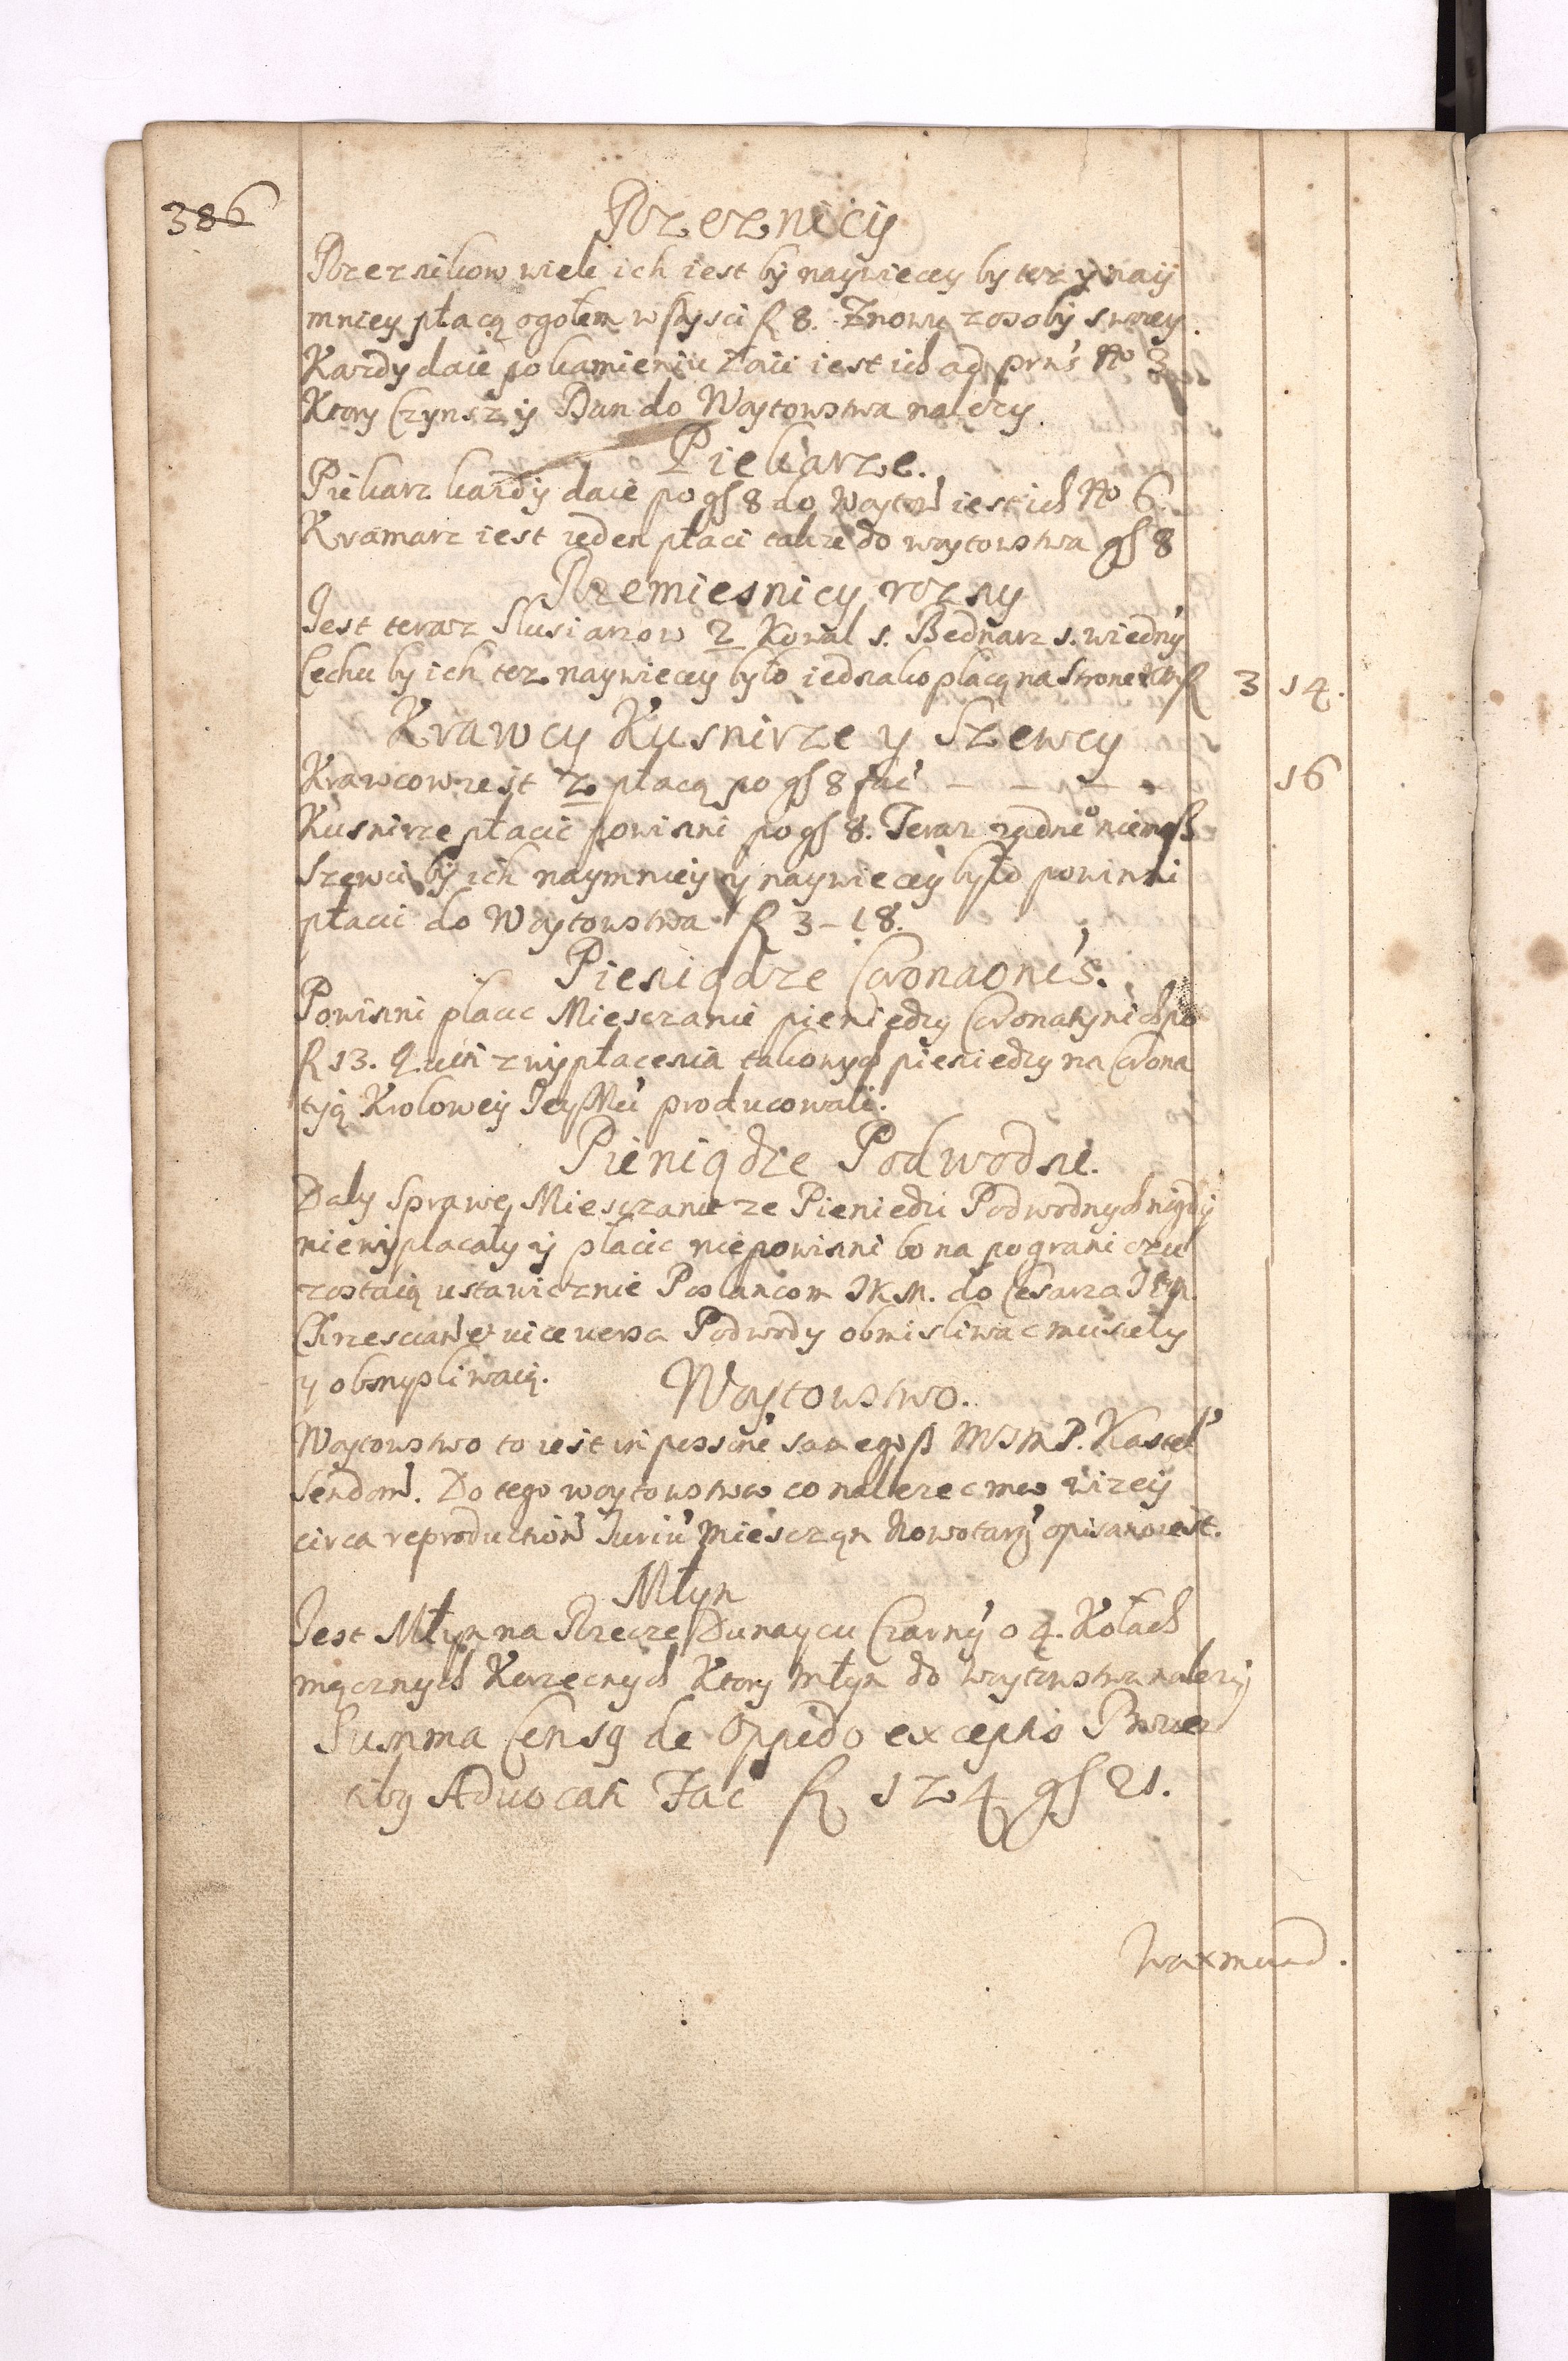 386
Rzeznicy
Rzeznikow wiele ich iest by naywiecey by tez y nay
mniey płacą ogołem wszysci fl 8. Znowu z osoby swoiey
Kazdy daie po kamieniu Łoiu iest ich ad prns No 3
Ktory Czynsz y Dan do Woytowstwa nalezy.
Piekarze.
Piekarz kazdy daie po gs 8 do Woytow iest ich No 6.
Kramarz iest ieden płaci takze do woytowstwa gs 8
Rzemiesnicy rozny
Jest teraz Slusiarzow 2 Kowal 1. Bednarz 1. w iedny
Cechu by ich tez naywiecey było iednako placą na Strone fl 3 14.
Krawcy Kusnirze y Szewcy
Krawcow iest 2 płacą po gs 8 fac - - - - 16
Kusnirze płacic powinni po gs 8. Teraz zadne niemasz
Szewci by ich naymniey y naywiecey było powinni
płacic do Woytowstwa fl 3 - 18.
Pieniądze Coronaonis.
Powinni placic Miesczanie pieniedzy Coronatynich po
fl 13. Q uiti z wypłacenia takowych pieniedzy na Corona
tyą Krolowey Jey Mci producowali.
Pieniądze Podwodne.
Daly Sprawę Miesczanie ze Pieniedzi Podwodnych nigdy
niewyplacały y płacic niepowinni bo na pograniczu
zostaią ustawicznie Posłancom JKM. do Cesarza Je M.
Chrzescian et vice versa Podwody obmisliwac musiely
y obmysliwaią.
Woytowstwo.
Woytowstwo to iest in possne samego JMP. Kastel
Sendom. Do tego woytowstwa co nalezec ma wizey
circa reproduction Juriu Miesczan Nowotarg opisano iest.
Młyn
Jest Młyn na Rzece Dunaycu Czarny o 4. Kołach
mącznych Korzecnych Ktory młyn do woytowstwa nalezy
Summa Censq de Oppido exceptis Prouen
tiby Aduocati Fac fl 124 gs 21.
Waxmund.